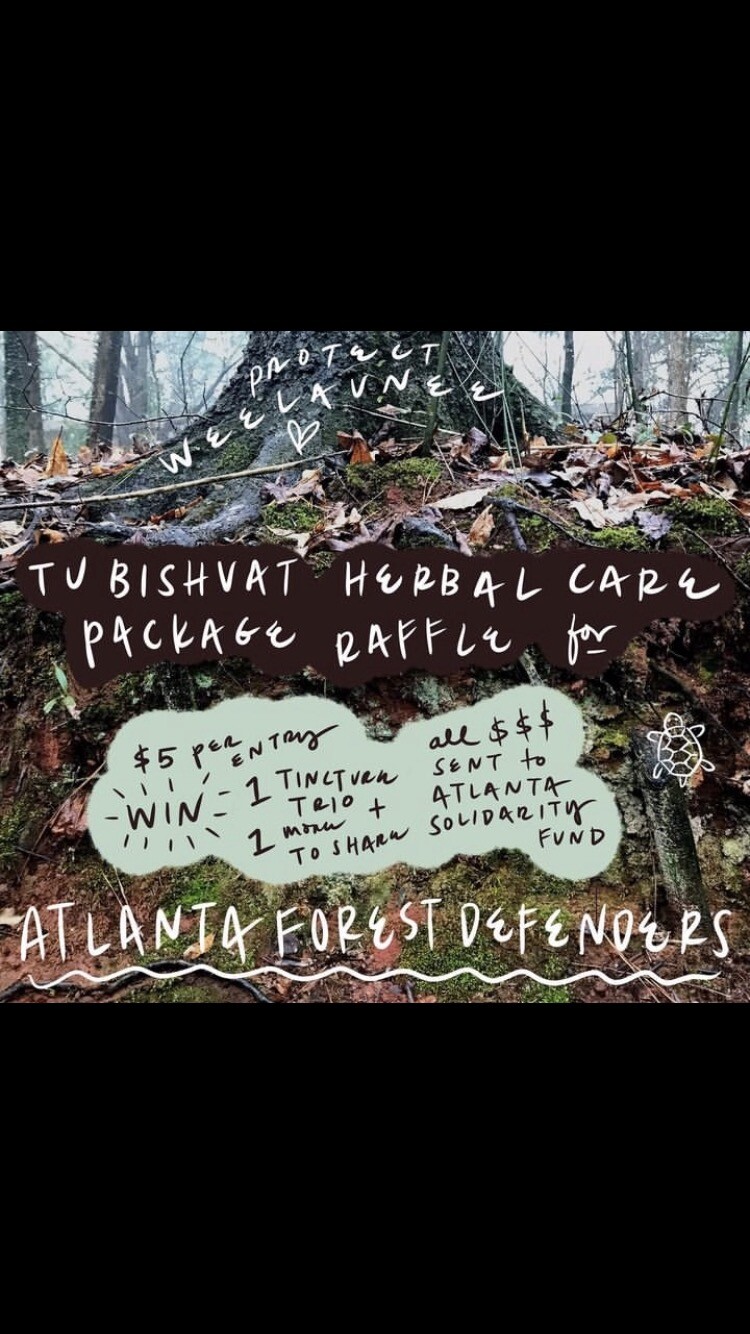 PROTECT
WEELAUNEE
TU BISHVAT HERBAL CARE
PACKAGE RAFFLE for
$5 PER ENTRY
WIN
1 TINCTURE TRIO +
1 more TO SHARE
all $$$
SENT to
ATLANTA
SOLIDARITY
FUND
ATLANTA FOREST DEFENDERS